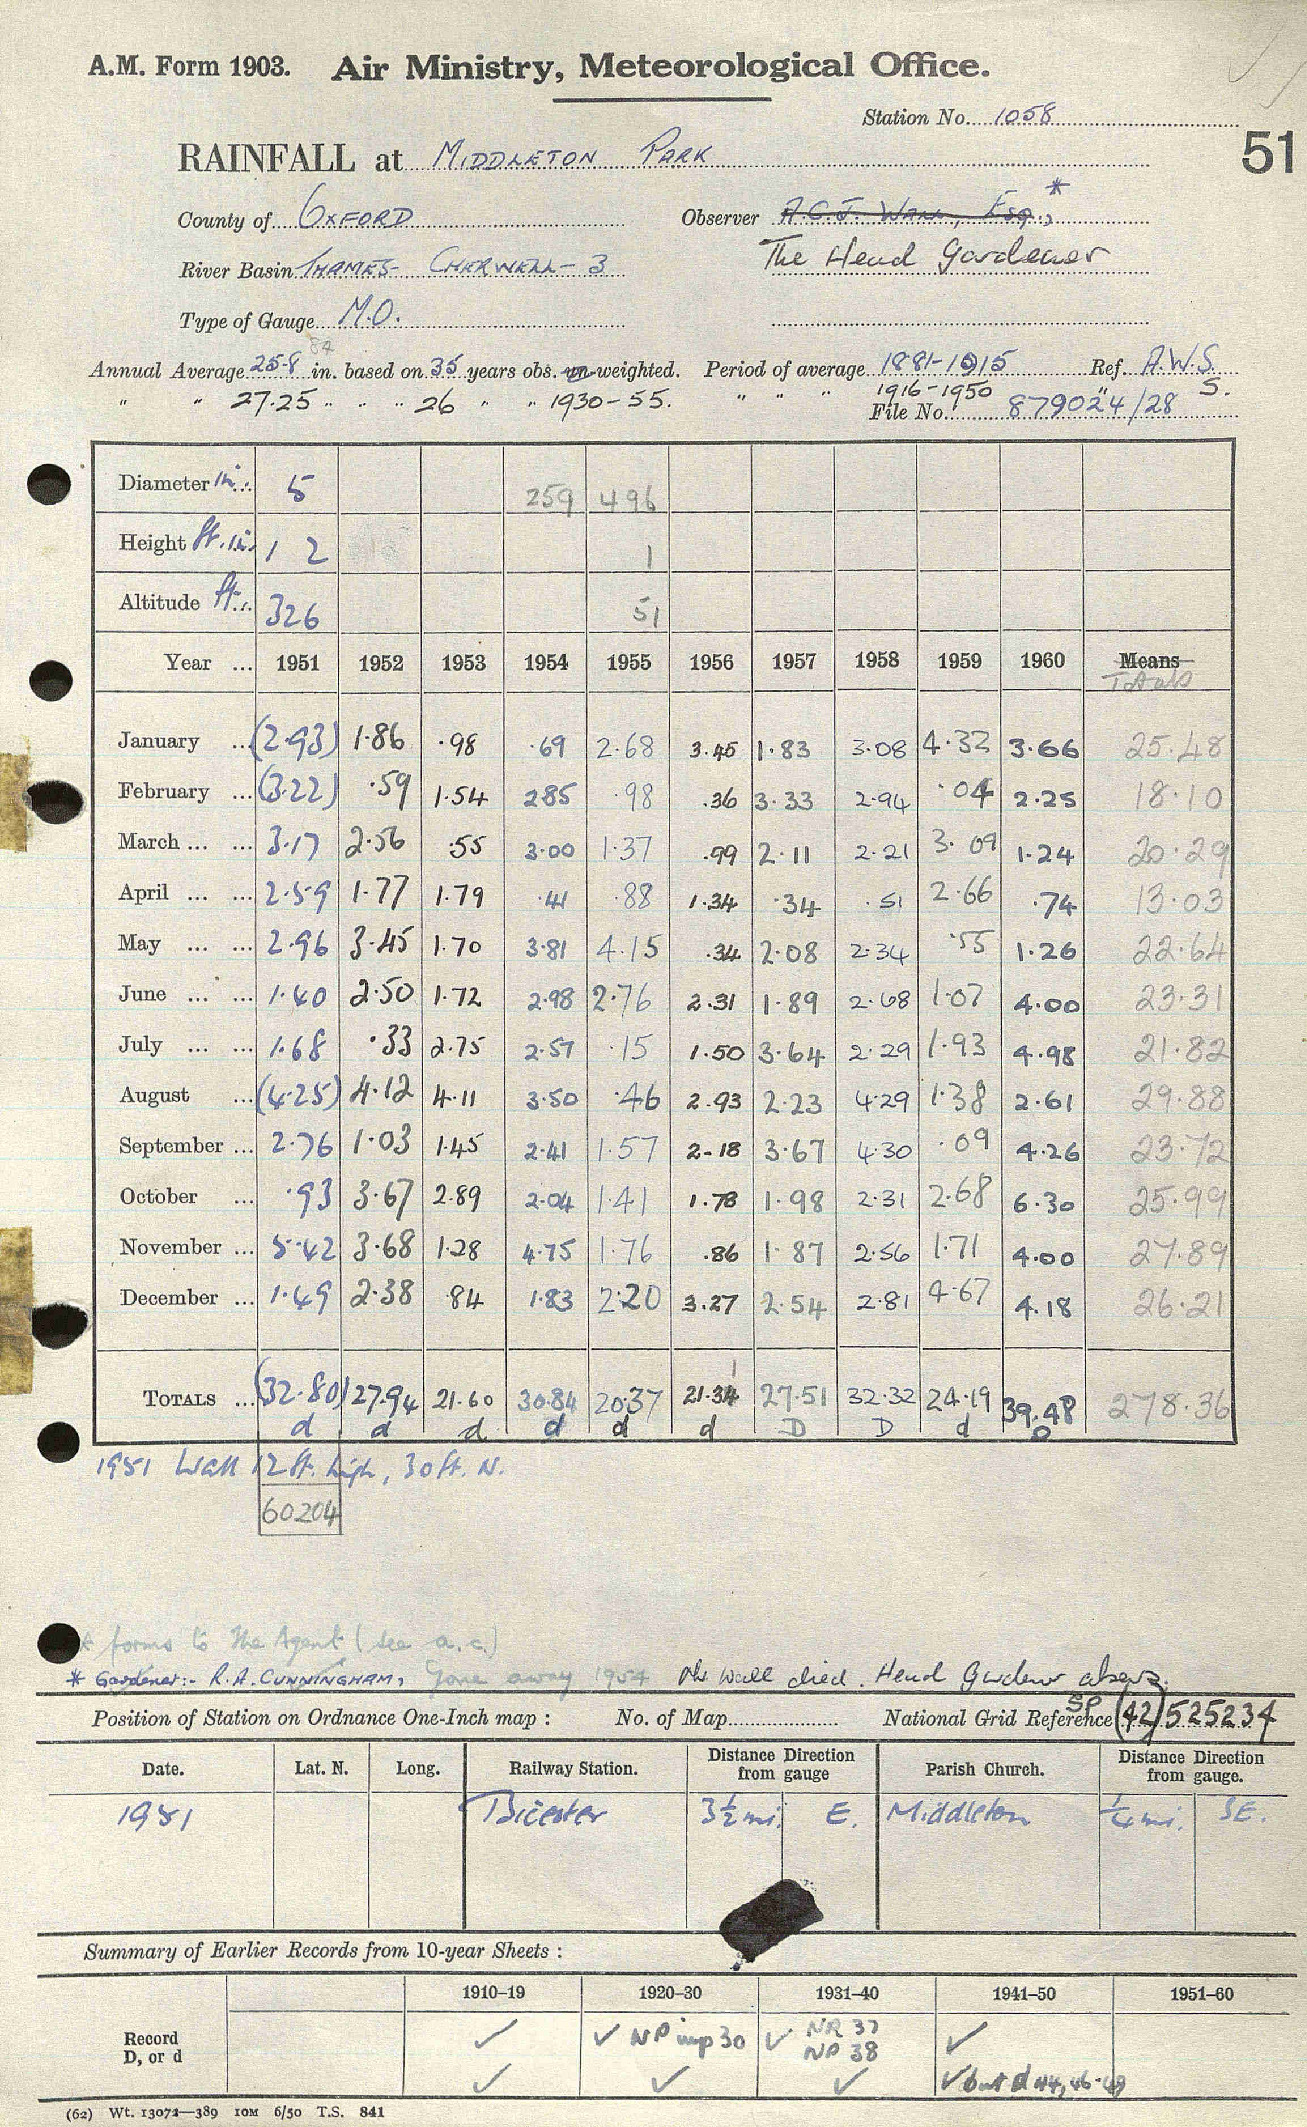 A.M. Form 1903. Air Ministry, Meteorological Office.
Station No. 1058
51
RAINFALL at MIDDLETON PARK
County of OXFORD Observer A.C.J. WALL, ESQ., *
The Head Gardener
River Basin THAMES - CHERWELL - 3
Type of Gauge M.O.
Annual Average 25.8 in. based on 35 years obs. un-weighted. Period of average 1881-1915 Ref. A.W.S.
" " 27.25 " " " 26 " " 1930-55. " " " 1916-1950 " S.
File No. 879024/28
Diameter in. 5 259 496
Height ft. in. 1 2 1
Altitude ft. 326 51
Year ... 1951 1952 1953 1954 1955 1956 1957 1958 1959 1960 Means
Totals
January ... (2.93) 1.86 .98 .69 2.68 3.45 1.83 3.08 4.32 3.66 25.48
February ... (3.22) .59 1.54 2.85 .98 .36 3.33 2.94 .04 2.25 18.10
March ... ... 3.17 2.56 .55 3.00 1.37 .99 2.11 2.21 3.09 1.24 20.29
April ... ... 2.59 1.77 1.79 .41 .88 1.34 .34 .51 2.66 .74 13.03
May ... ... 2.96 3.45 1.70 3.81 4.15 .34 2.08 2.34 .55 1.26 22.64
June ... ... 1.40 2.50 1.72 2.98 2.76 2.31 1.89 2.68 1.07 4.00 23.31
July ... ... 1.68 .33 2.75 2.57 .15 1.50 3.64 2.29 1.93 4.98 21.82
August ... (4.25) 4.12 4.11 3.50 .46 2.93 2.23 4.29 1.38 2.61 29.88
September ... 2.76 1.03 1.45 2.41 1.57 2.18 3.67 4.30 .09 4.26 23.72
October ... .93 3.67 2.89 2.04 1.41 1.78 1.98 2.31 2.68 6.30 25.99
November ... 5.42 3.68 1.28 4.75 1.76 .86 1.87 2.56 1.71 4.00 27.89
December ... 1.49 2.38 .84 1.83 2.20 3.27 2.54 2.81 4.67 4.18 26.21
TOTALS ... (32.80) 27.94 21.60 30.84 20.37 21.34 27.51 32.32 24.19 39.48 278.36
d d d d d d D D d D
1951 Wall 12 ft. high, 30 ft. N.
60204
* forms to The Agent (see a.c.)
* Gardener:- R.A. CUNNINGHAM, Gone away 1954 Mr Wall died. Head Gardener above.
Position of Station on Ordnance One-Inch map : No. of Map National Grid Reference SP (42) 525234
Date. Lat. N. Long. Railway Station. Distance Direction from gauge Parish Church. Distance Direction from gauge.
1951 Bicester 3½ mi. E. Middleton ¼ mi. SE.
Summary of Earlier Records from 10-year Sheets :
1910-19 1920-30 1931-40 1941-50 1951-60
Record ✓ ✓ NP imp 30 ✓ NR 37 NP 38 ✓
D, or d ✓ ✓ ✓ ✓ but d 44, 46-49
(62) Wt. 13072—389 10M 6/50 T.S. 841